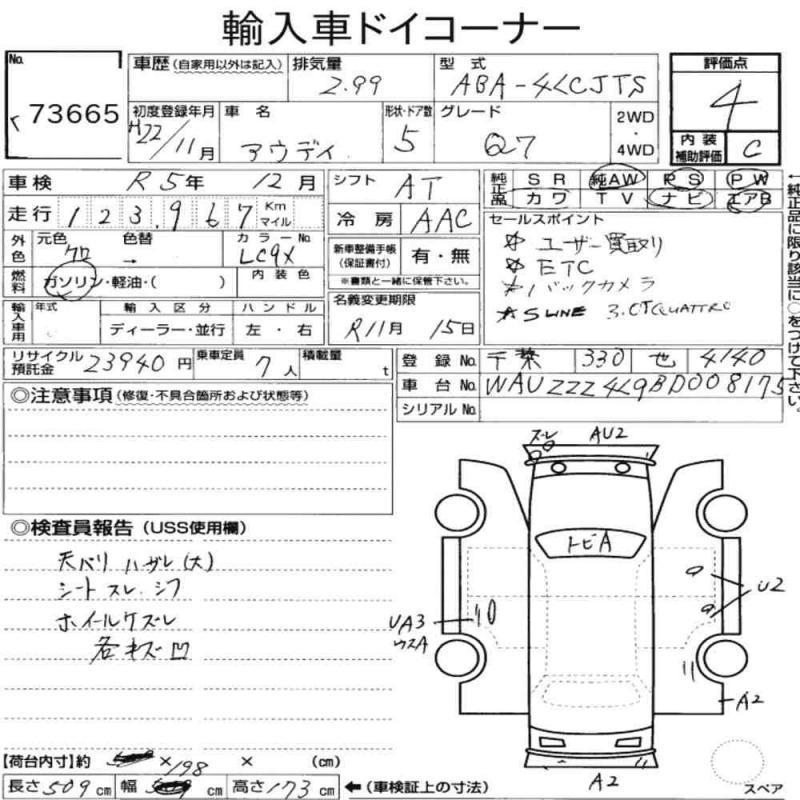 輸入車ドイコーナー
No. 73665
車歴(自家用以外は記入) 排気量 2.99 型式 ABA-4LCJTS 評価点 4
初度登録年月 H22/11月 車名 アウディ 形状・ドア数 5 グレード Q7 2WD・4WD 内装補助評価 C
車検 R5年 12月 シフト AT 純正品 SR 純AW PS PW
カワ TV ナビ エアB
走行 123,967 Km マイル 冷房 AAC
セールスポイント
外色 元色 クロ 色替 → カラーNo LC9X 新車整備手帳(保証書付) 有・無
☆ ユーザー買取り
☆ ETC
燃料 ガソリン・軽油・( ) 内装色 ※書類と一緒に保管下さい。
☆ バックカメラ
☆ S LINE 3.0TQUATTRO
輸入車用 年式 輸入区分 ハンドル 名義変更期限
ディーラー・並行 左・右 R11月 15日
リサイクル預託金 23940円 乗車定員 7人 積載量 t
登録No. 千葉 330 也 4140
車台No. WAUZZZ4L9BD008175
シリアルNo.
↑純正品に限り該当に○をつけて下さい。
◎注意事項(修復・不具合箇所および状態等)
◎検査員報告(USS使用欄)
天バリ ハガレ(大)
シート スレ、シワ
ホイールケズレ
各キズ凹
ズレ AU2
トビA
U2
UA3
ウスA
A2
A2
スペア
【荷台内寸】約 × 198 × (cm)
長さ509cm 幅 cm 高さ173cm ←(車検証上の寸法)